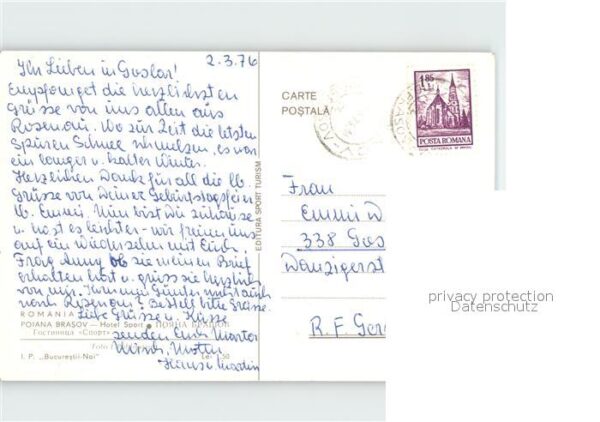 2.3.76
Ihr Lieben in Goslar!
Empfanget die herzlichsten
Grüsse von uns allen aus
Rosenau. Wo zur Zeit die letzten
Spuren Schnee schmelzen, es war
ein langer u. kalter Winter.
Herzlichen Dank für all die lb.
Grüsse von Deiner Geburtstagsfeier
lb. Emmi. Nun bist Du zuhause
u. hast es leichter - wir freuen uns
auf ein Wiedersehen mit Euch.
Frag Anny ob sie meinen Brief
erhalten hat u. grüss sie herzlich
von mir. Günter nicht auch
nach Rosenau? Bestell bitte Grüsse.
Liebe Grüsse u. Küsse
senden Euch
ROMANIA
POIANA BRAŞOV — Hotel Sport • ПОЯНА БРАШОВ
Гостиница «Спорт»
Foto
I. P. „Bucureştii-Noi"
Lei 1,50
EDITURA SPORT TURISM
CARTE
POŞTALĂ
1,85
LEI
POSTA ROMANA
Frau
Emmi
338
Danzigerst
R.F.
privacy protection
Datenschutz